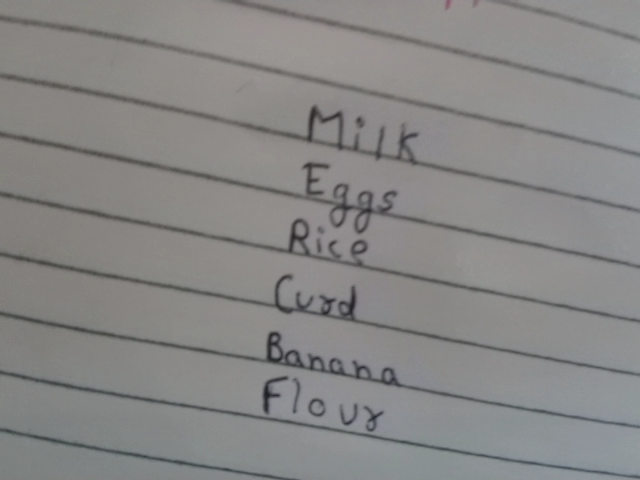 Milk
Eggs
Rice
Curd
Banana
Flour